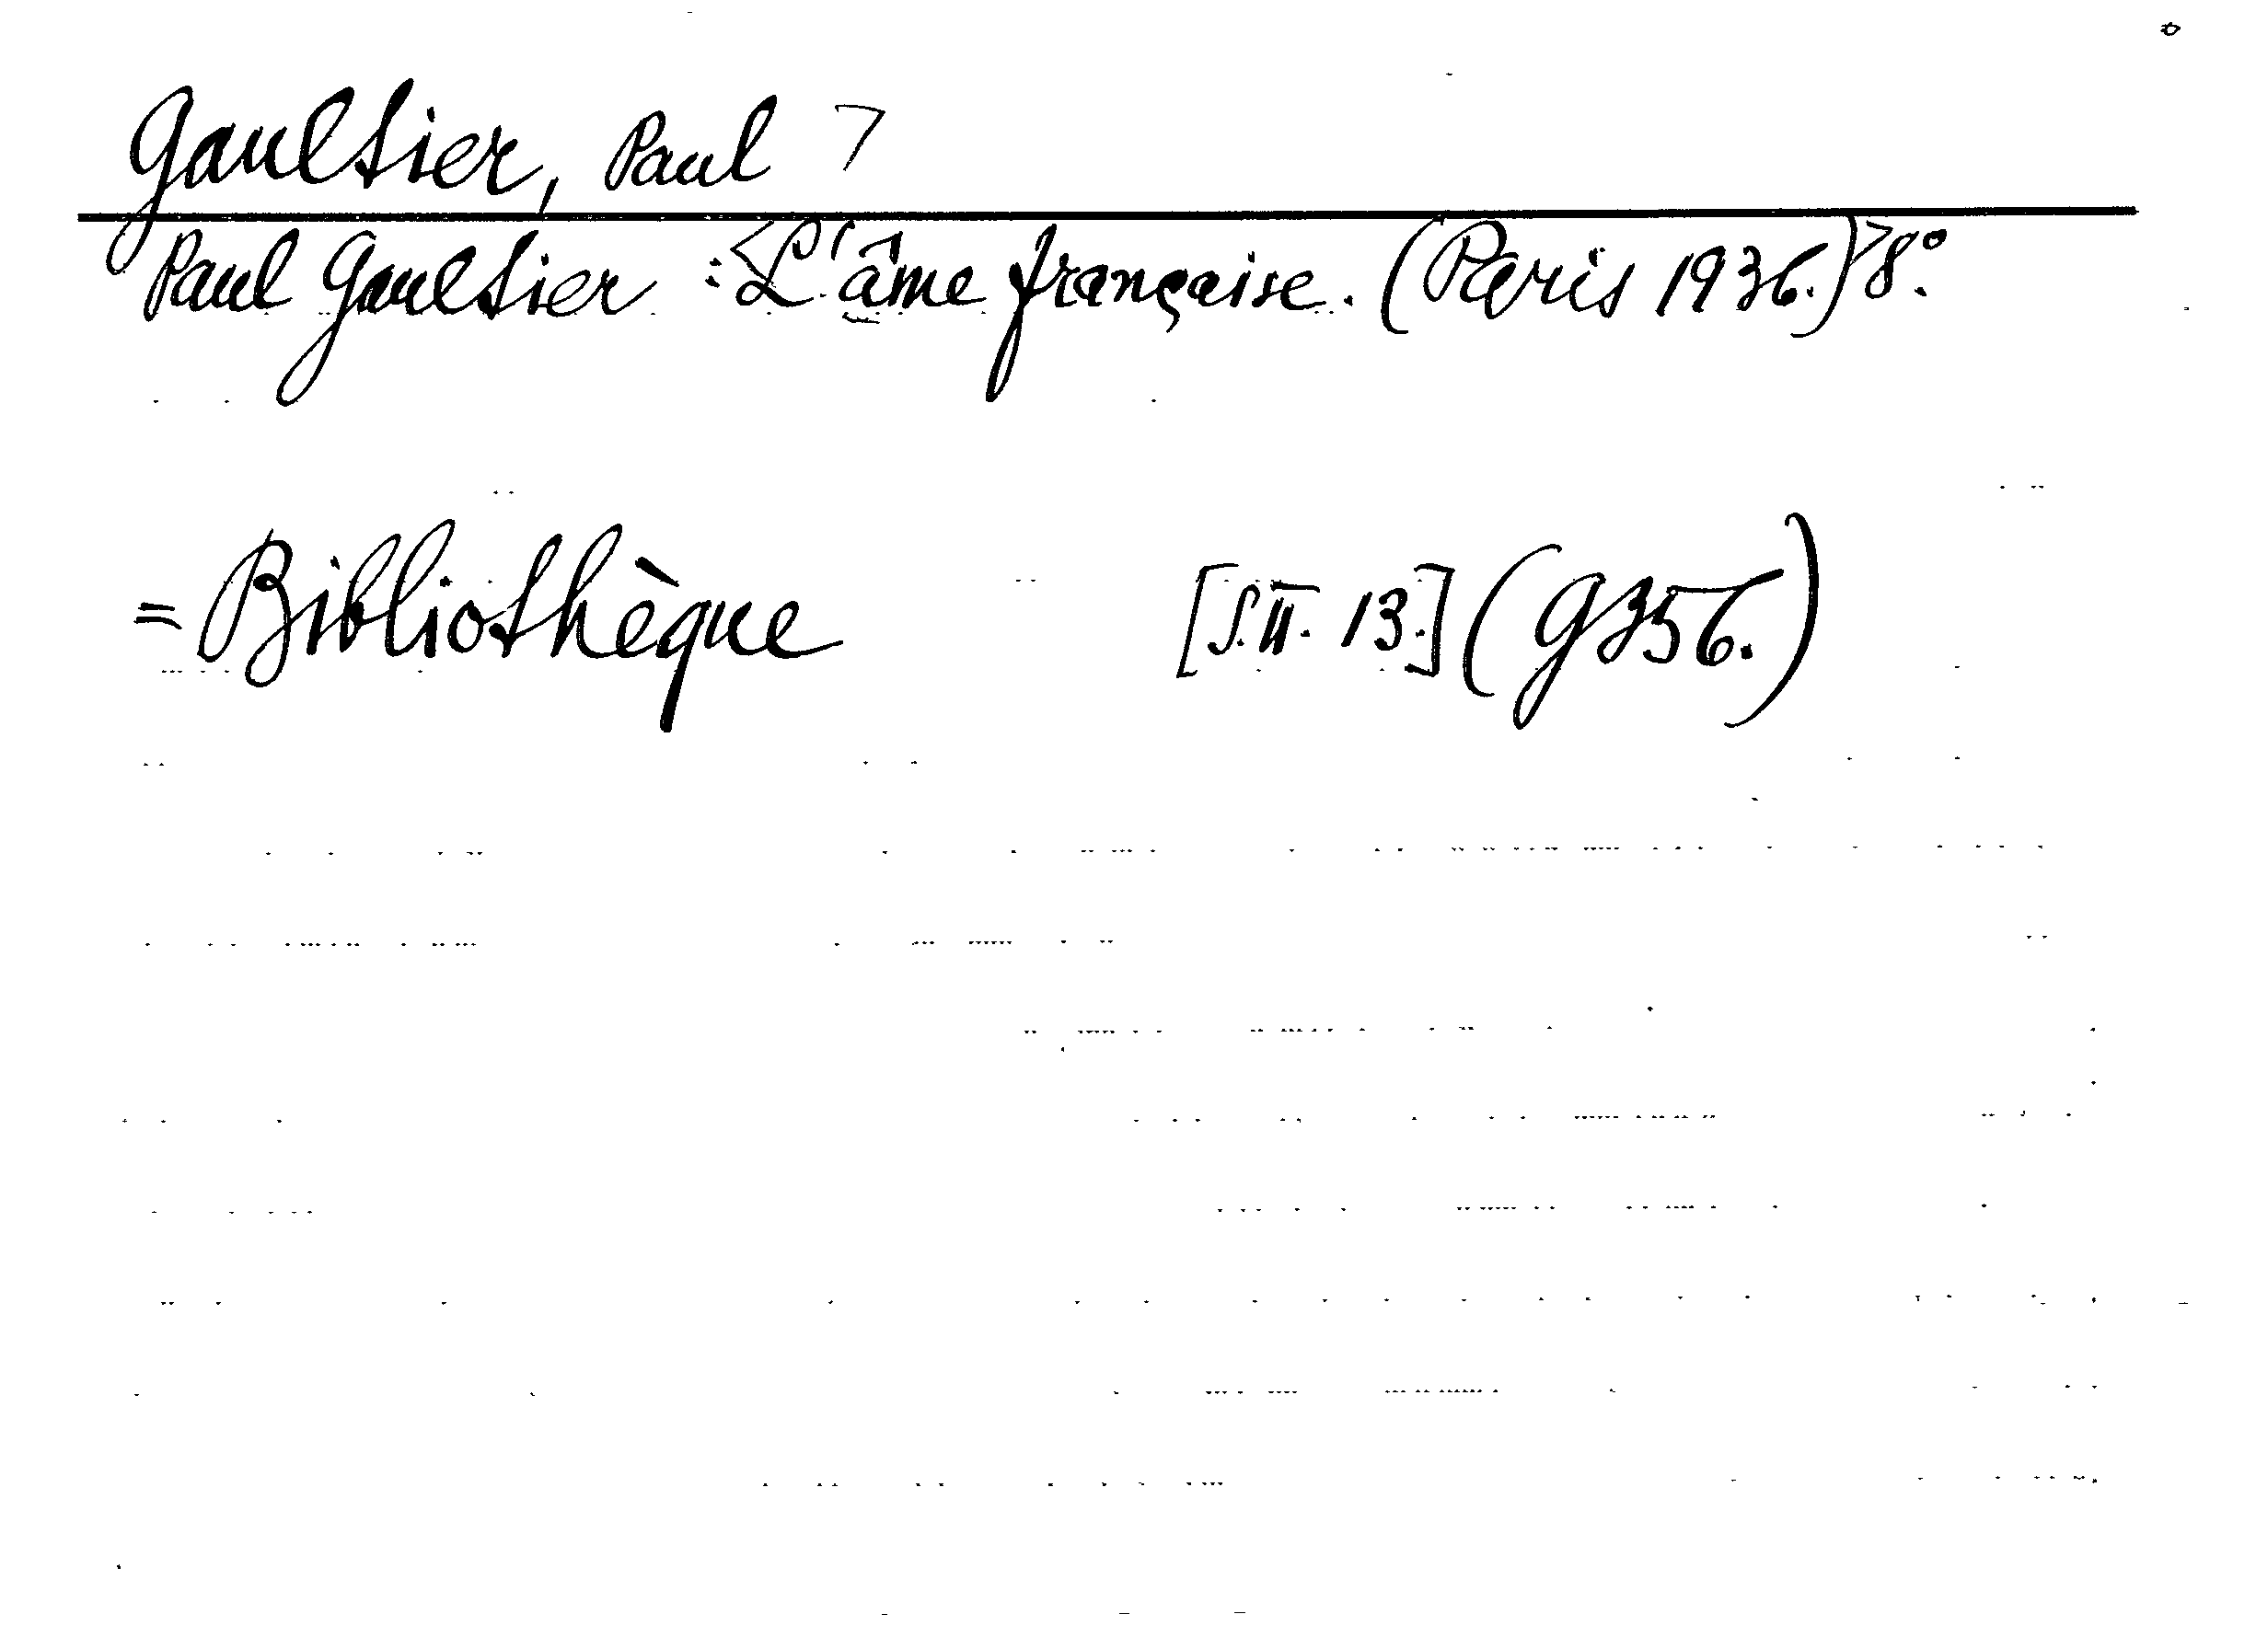 Gaultier, Paul ⁊
Paul Gaultier: <L'âme française. (Paris 1936.)> 8°.
= Bibliothèque [S. II. 13.] (G 356.)